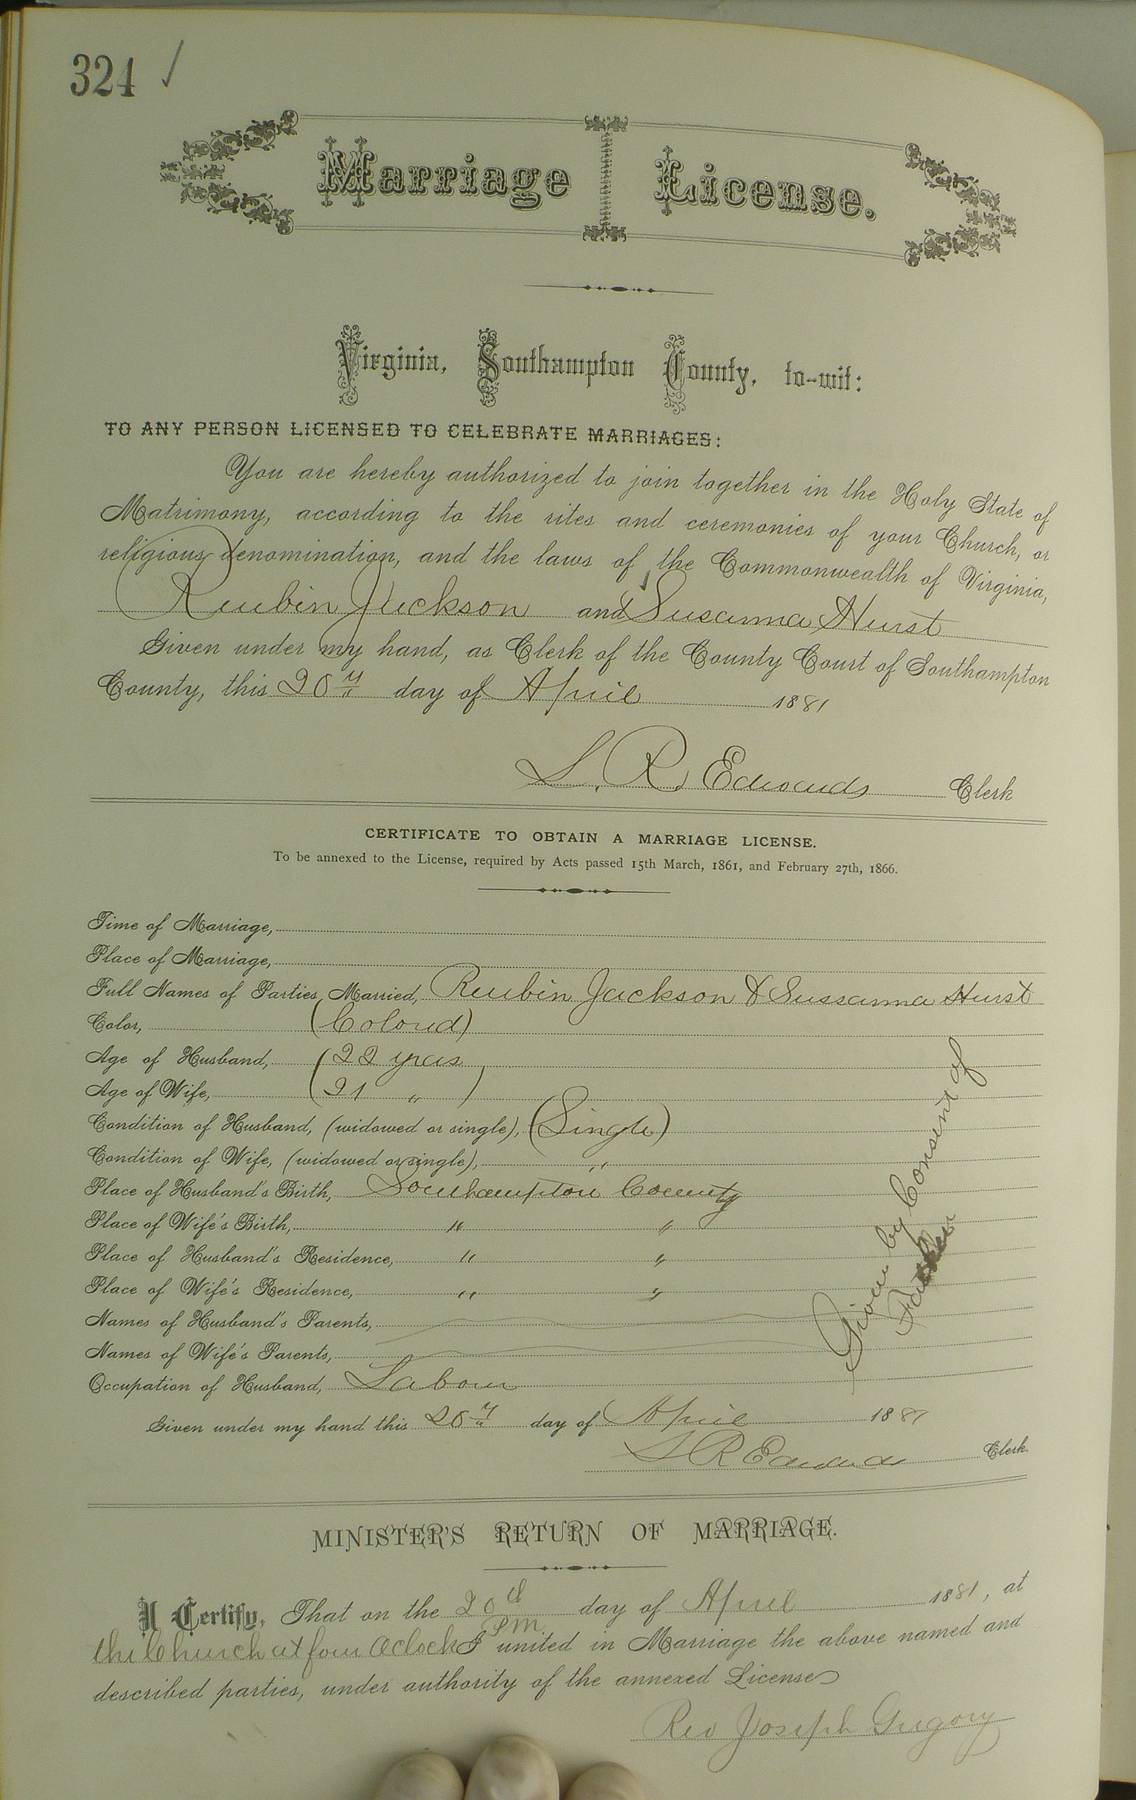 324 ✓
Marriage License.
Virginia, Southampton County, to-wit:
TO ANY PERSON LICENSED TO CELEBRATE MARRIAGES:
You are hereby authorized to join together in the Holy State of
Matrimony, according to the rites and ceremonies of your Church, or
religious denomination, and the laws of the Commonwealth of Virginia,
Reubin Jackson and Susanna Hurst
Given under my hand, as Clerk of the County Court of Southampton
County, this 20 day of April 1881
L. R. Edwards Clerk
CERTIFICATE TO OBTAIN A MARRIAGE LICENSE.
To be annexed to the License, required by Acts passed 15th March, 1861, and February 27th, 1866.
Time of Marriage,
Place of Marriage,
Full Names of Parties Married, Reubin Jackson & Sussanna Hurst
Color, (Colored)
Age of Husband, (22 years
Age of Wife, (21 " )
Condition of Husband, (widowed or single), (Single)
Condition of Wife, (widowed or single), "
Place of Husband's Birth, Southampton County
Place of Wife's Birth, " "
Place of Husband's Residence, " "
Place of Wife's Residence, " "
Names of Husband's Parents,
Names of Wife's Parents,
Occupation of Husband, Labour
Given by Consent of
Father
Given under my hand this 20 day of April 1881
L R Edwards Clerk
MINISTER'S RETURN OF MARRIAGE.
I Certify, That on the 20th day of April 1881, at
the Church at four Oclock P m. I united in Marriage the above named and
described parties, under authority of the annexed License
Rev Joseph Gregory